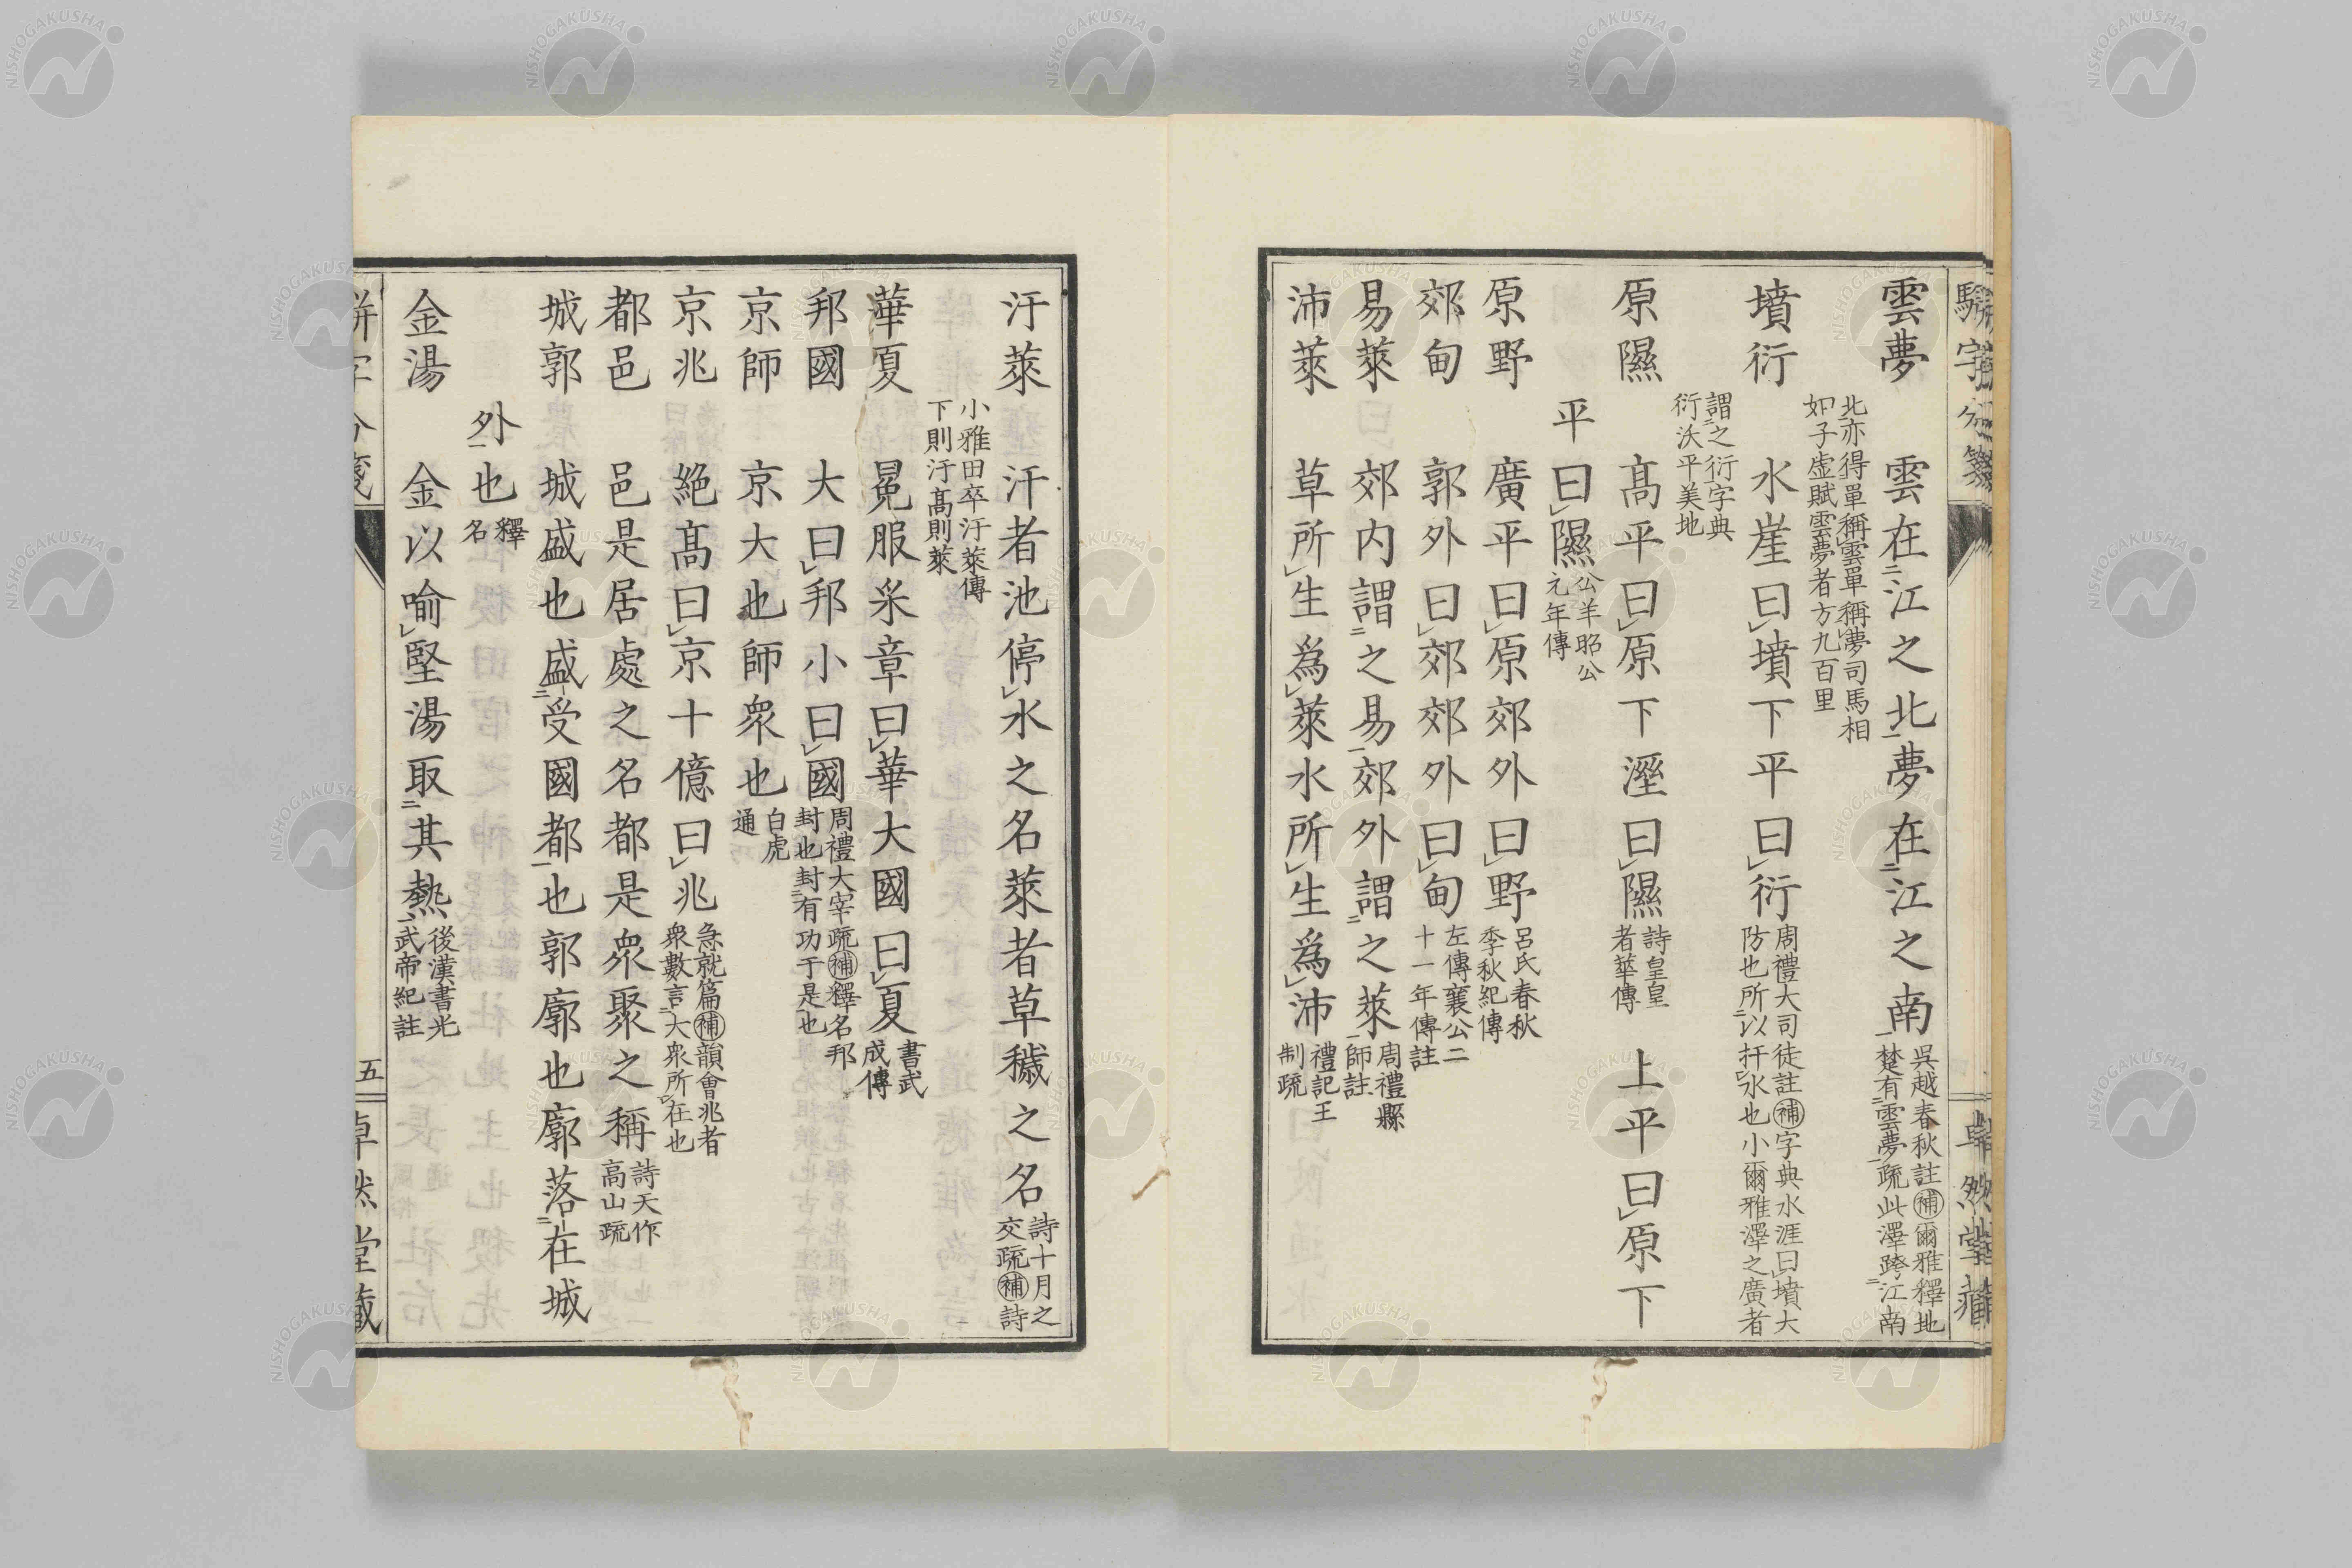 雲夢 雲在二江之北一夢在二江之南一 吳越春秋註補爾雅釋地
楚有二雲夢一疏此澤跨二江南
北一亦得單稱雲單稱夢司馬相
如子虛賦雲夢者方九百里
墳衍 水崖曰墳下平曰衍 周禮大司徒註補字典水涯曰墳大
防也所二以扞水也小爾雅澤之廣者
謂二之衍字典
衍沃平美地
原隰 高平曰原下溼曰隰 詩皇皇
者華傳 上平曰原下
平曰隰 公羊昭公
元年傳
原野 廣平曰原郊外曰野 呂氏春秋
季秋紀傳
郊甸 郭外曰郊郊外曰甸 左傳襄公二
十一年傳註
易萊 郊內謂二之易一郊外謂二之萊一 周禮縣
師註
沛萊 草所生為萊水所生為沛 禮記王
制疏
汙萊 汙者池停水之名萊者草穢之名 詩十月之
交疏補詩
小雅田卒汙萊傳
下則汙高則萊
華夏 冕服采章曰華大國曰夏 書武
成傳
邦國 大曰邦小曰國 周禮大宰疏補釋名邦
封也封二有功于是一也
京師 京大也師眾也 白虎
通
京兆 絕高曰京十億曰兆 急就篇補韻會兆者
眾數言二大眾所在也
都邑 邑是居處之名都是眾聚之稱 詩天作
高山疏
城郭 城盛也盛二受國都一也郭廓也廓落二在城
外一也 釋
名
金湯 金以喻堅湯取二其熱一 後漢書光
武帝紀註
五
NISHOGAKUSHA